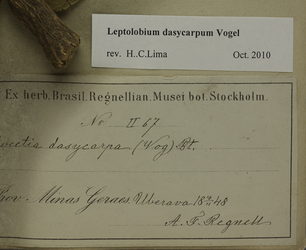 Leptolobium dasycarpum Vogel
rev. H..C.Lima Oct. 2010
Ex herb. Brasil. Regnellian. Musei bot. Stockholm.
No II 67.
dasycarpa (Vog) Bt.
Prov. Minas Geraes. Uberava 1848
A. F. Regnell